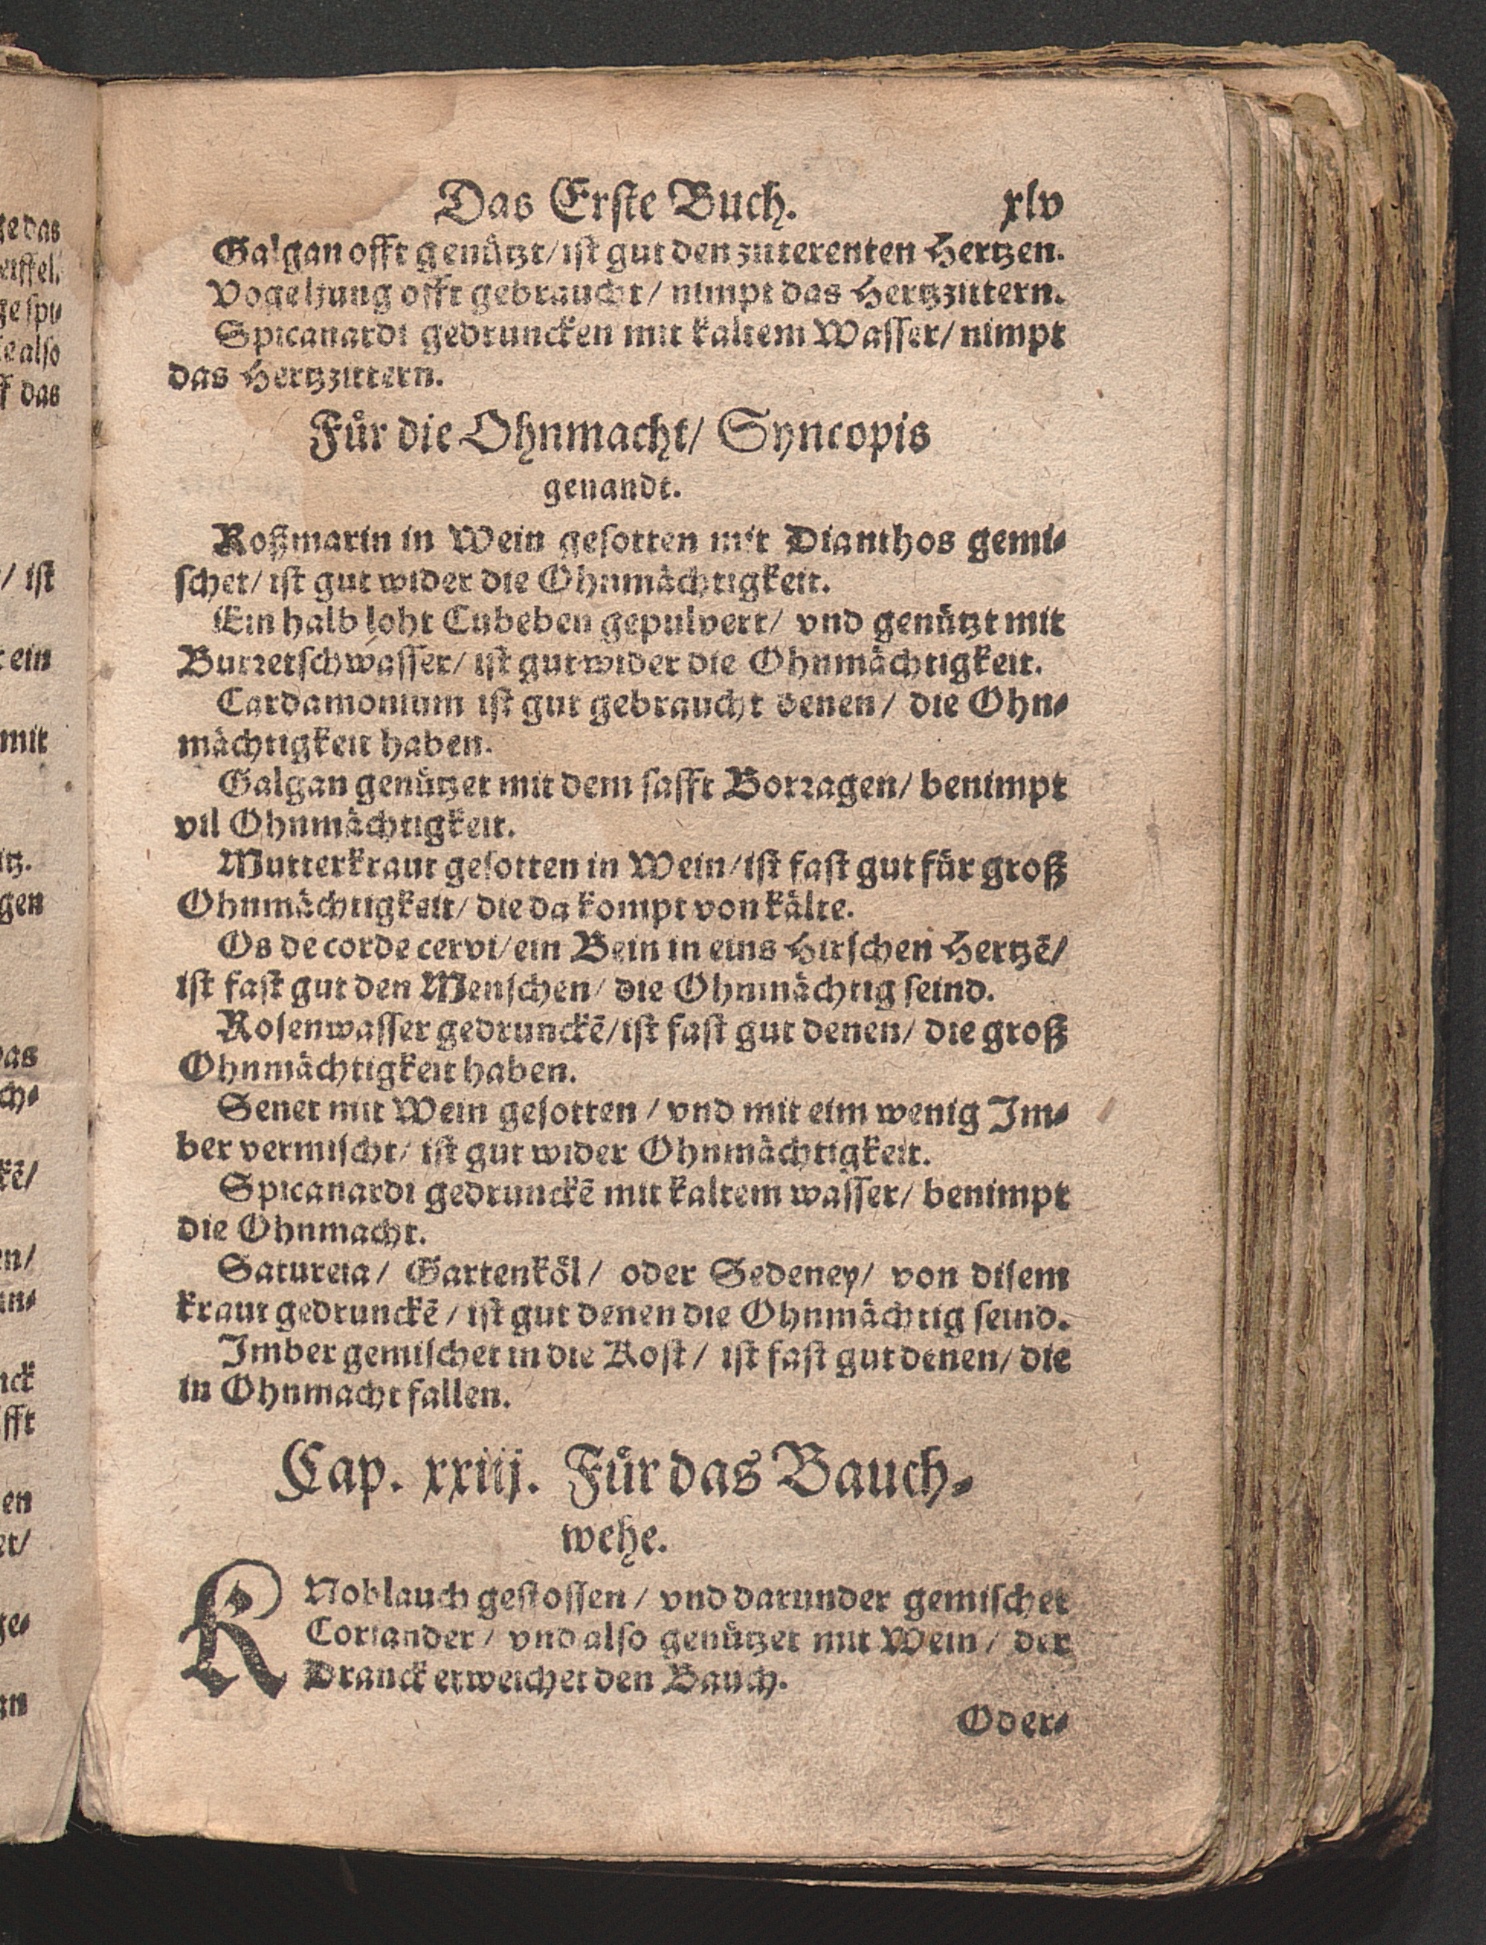 Das Erste Buch. xlv
Galgan offt genützt/ ist gut den zitterenten Hertzen.
Vogelzung offt gebraucht/ nimpt das Hertzzittern.
Spicanardi gedruncken mit kaltem Wasser/ nimpt
das Hertzzittern.
Für die Ohnmacht/ Syncopis
genandt.
Roßmarin in Wein gesotten mit Dianthos gemi-
schet/ ist gut wider die Ohnmächtigkeit.
Ein halb loht Cubeben gepulvert/ vnd genützt mit
Burretschwasser/ ist gut wider die Ohnmächtigkeit.
Cardamomum ist gut gebraucht denen/ die Ohn-
mächtigkeit haben.
Galgan genützet mit dem safft Borragen/ benimpt
vil Ohnmächtigkeit.
Mutterkraut gesotten in Wein/ ist fast gut für groß
Ohnmächtigkeit/ die da kompt von kälte.
Os de corde cervi/ ein Bein in eins Hirschen Hertzē/
ist fast gut den Menschen/ die Ohnmächtig seind.
Rosenwasser gedrunckē/ ist fast gut denen/ die groß
Ohnmächtigkeit haben.
Senet mit Wein gesotten/ vnd mit eim wenig Im-
ber vermischt/ ist gut wider Ohnmächtigkeit.
Spicanardi gedrunckē mit kaltem wasser/ benimpt
die Ohnmacht.
Satureia/ Gartenköl/ oder Sedeney/ von disem
kraut gedrunckē/ ist gut denen die Ohnmächtig seind.
Imber gemischet in die Kost/ ist fast gut denen/ die
in Ohnmacht fallen.
Cap. xxiij. Für das Bauch-
wehe.
KNoblauch gestossen/ vnd darunder gemischet
Coriander/ vnd also genützet mit Wein/ der
Dranck erweichet den Bauch.
Oder-